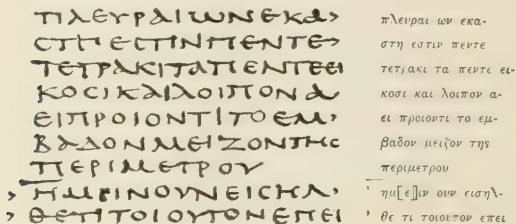 ΠΛΕΥΡΑΙΩΝΕΚΑ>
CΤΗΕCΤΙΝΠΕΝΤΕ>
ΤΕΤΡΑΚΙΤΑΠΕΝΤΕΕΙ
ΚΟCΙΚΑΙΛΟΙΠΟΝΑ
ΕΙΠΡΟΙΟΝΤΙΤΟΕΜ>
ΒΑΔΟΝΜΕΙΖΟΝΤΗC
ΠΕΡΙΜΕΤΡΟΥ
> ΗΜΕΙΝΟΥΝΕΙCΗΛ>
> ΘΕΤΙΤΟΙΟΥΤΟΝΕΠΕΙ
πλευραι ων εκα-
στη εστιν πεντε
τετρακι τα πεντε ει-
κοσι και λοιπον α-
ει προιοντι το εμ-
βαδον μειζον της
περιμετρου
' ημ[ε]ιν ουν εισηλ-
' θε τι τοιουτον επει